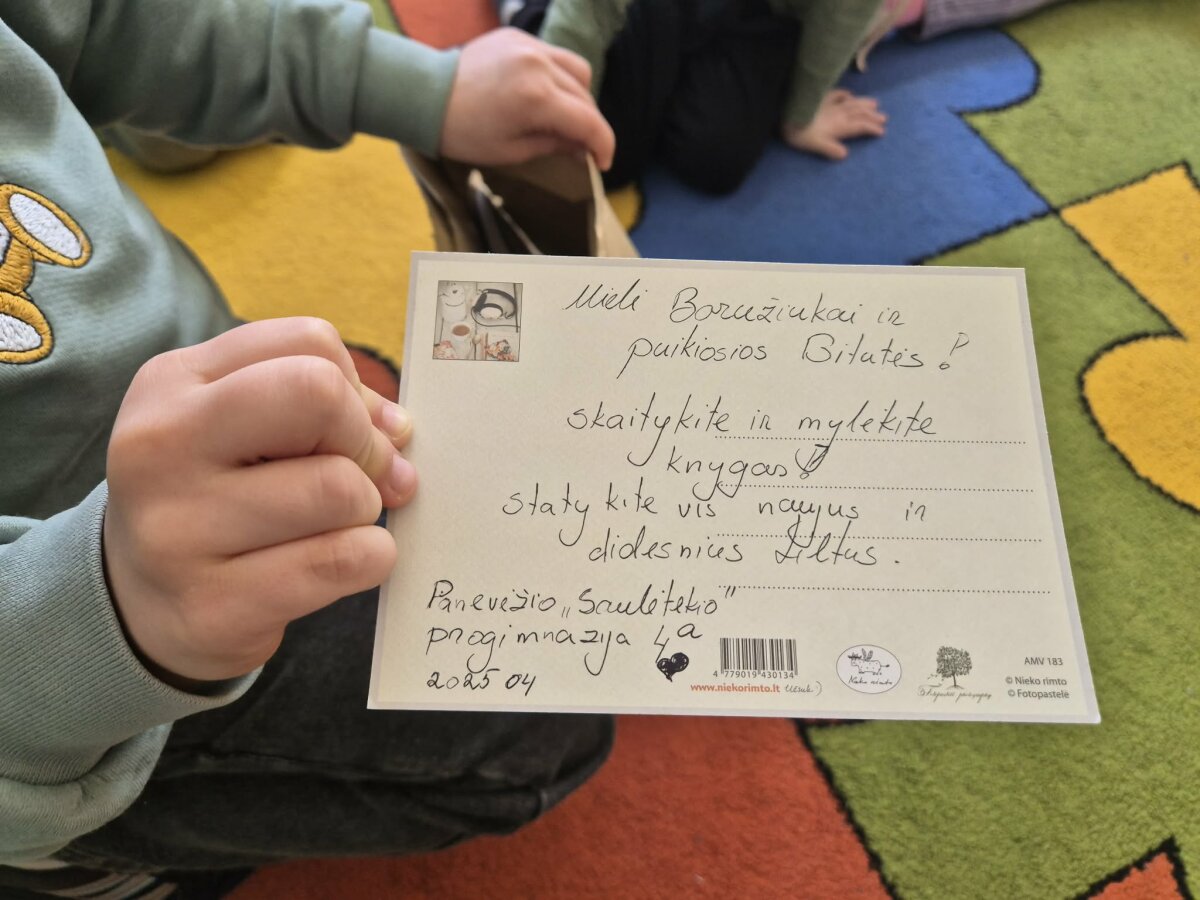 Mieli Boružiukai ir
puikiosios Bitutės!
skaitykite ir mylėkite
knygas!
statykite vis naujus ir
didesnius tiltus.
Panevėžio „Saulėtekio"
progimnazija 4a
2025 04
4 779019 430134
www.niekorimto.lt
Nieko rimto
AMV 183
© Nieko rimto
© Fotopastelė